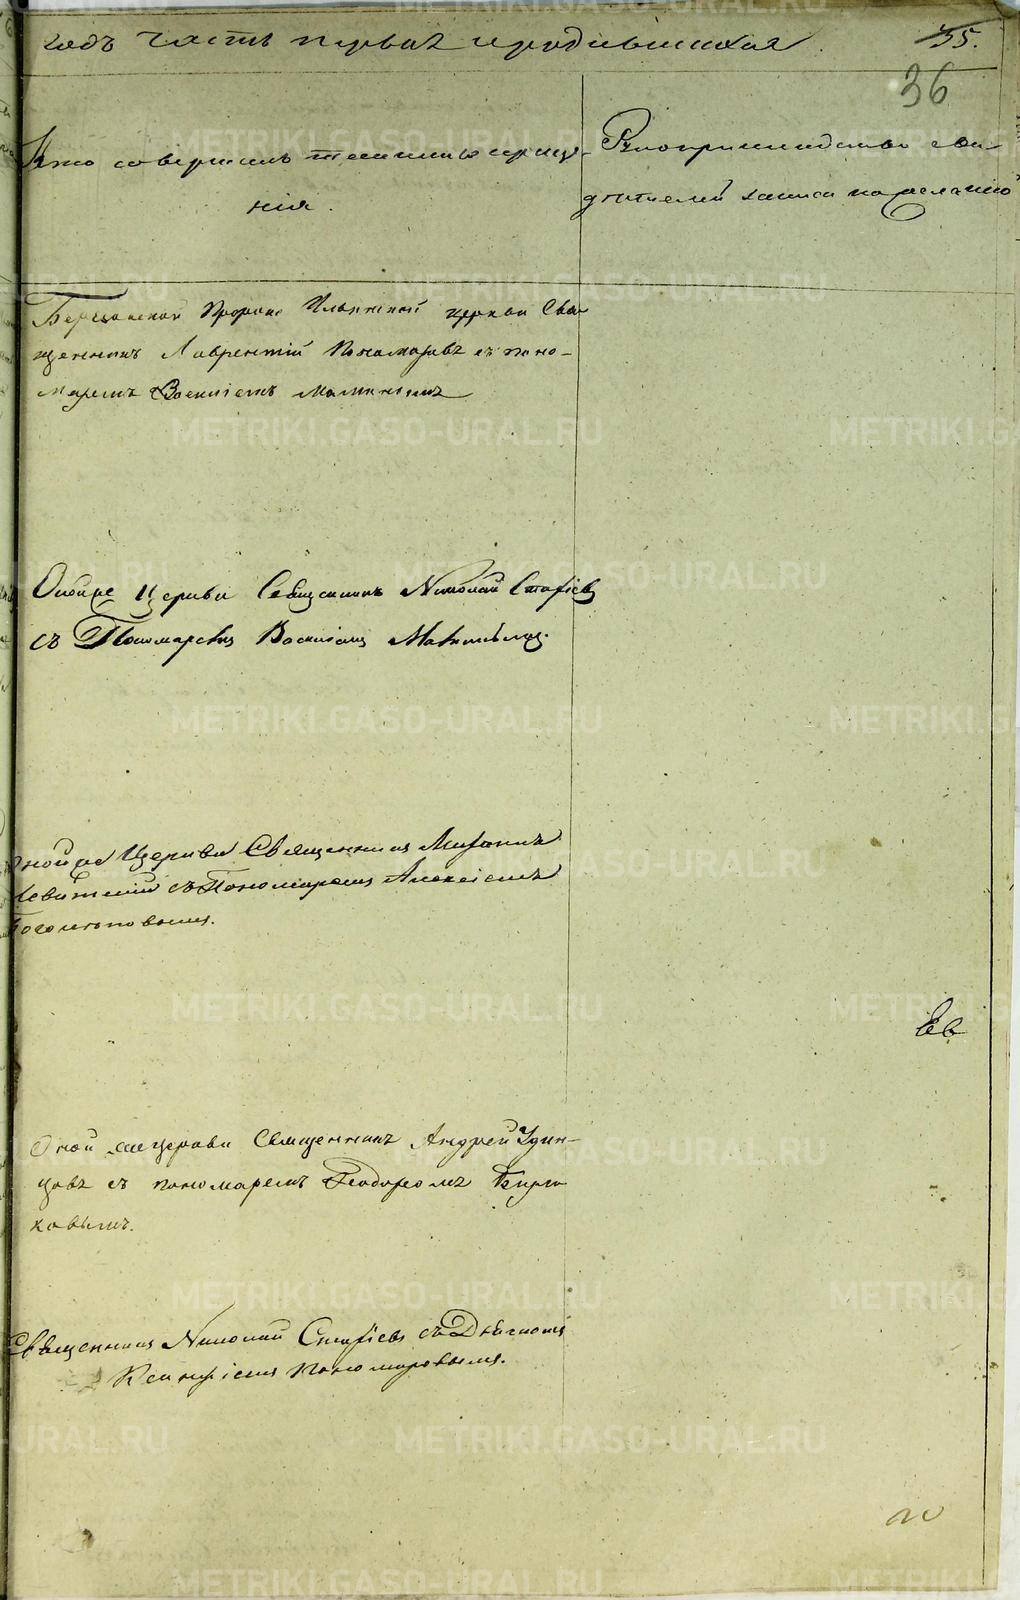 годъ часть первая о родившихся. 35.
36
Кто совершалъ таинство креще-
нія.
Рукоприкладство сви
дѣтелей записи по желанію
Пророко Ильинской церкви Свя
щенникъ Лаврентій Пономаревъ съ поно-
маремъ Василіемъ
Оной же Церкви Священникъ Николай Стафіевъ
съ Пономаремъ Василіемъ
Оной же Церкви Священникъ
Левитскій съ Пономаремъ Алексіемъ
Оной же церкви Священникъ Андрей Удин-
цовъ съ пономаремъ Феодоромъ Бирю
ковымъ.
Священникъ Николай Стафіевъ съ Дьячкомъ
Пономаревымъ.
METRIKI.GASO-URAL.RU